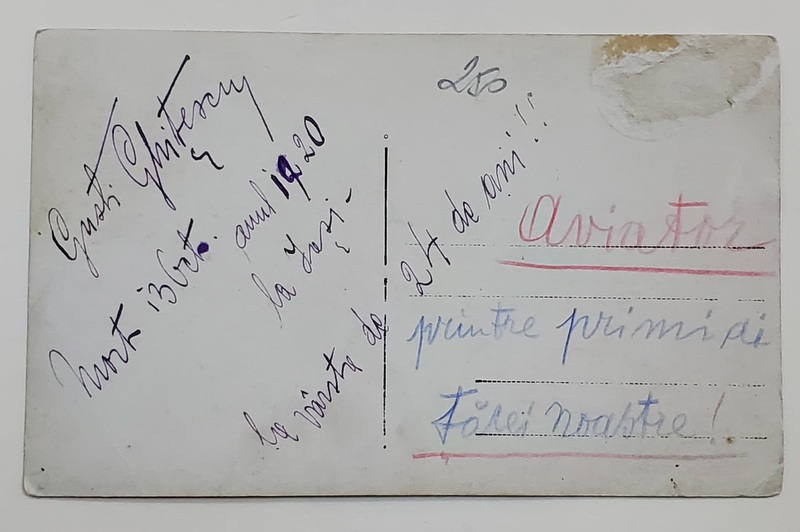 Gusti Ghițescu
Mort 13 Oct. anul 1920
la Iași -
la vârsta de 24 de ani!!
250
Aviator
printre primii ai
țărei noastre!